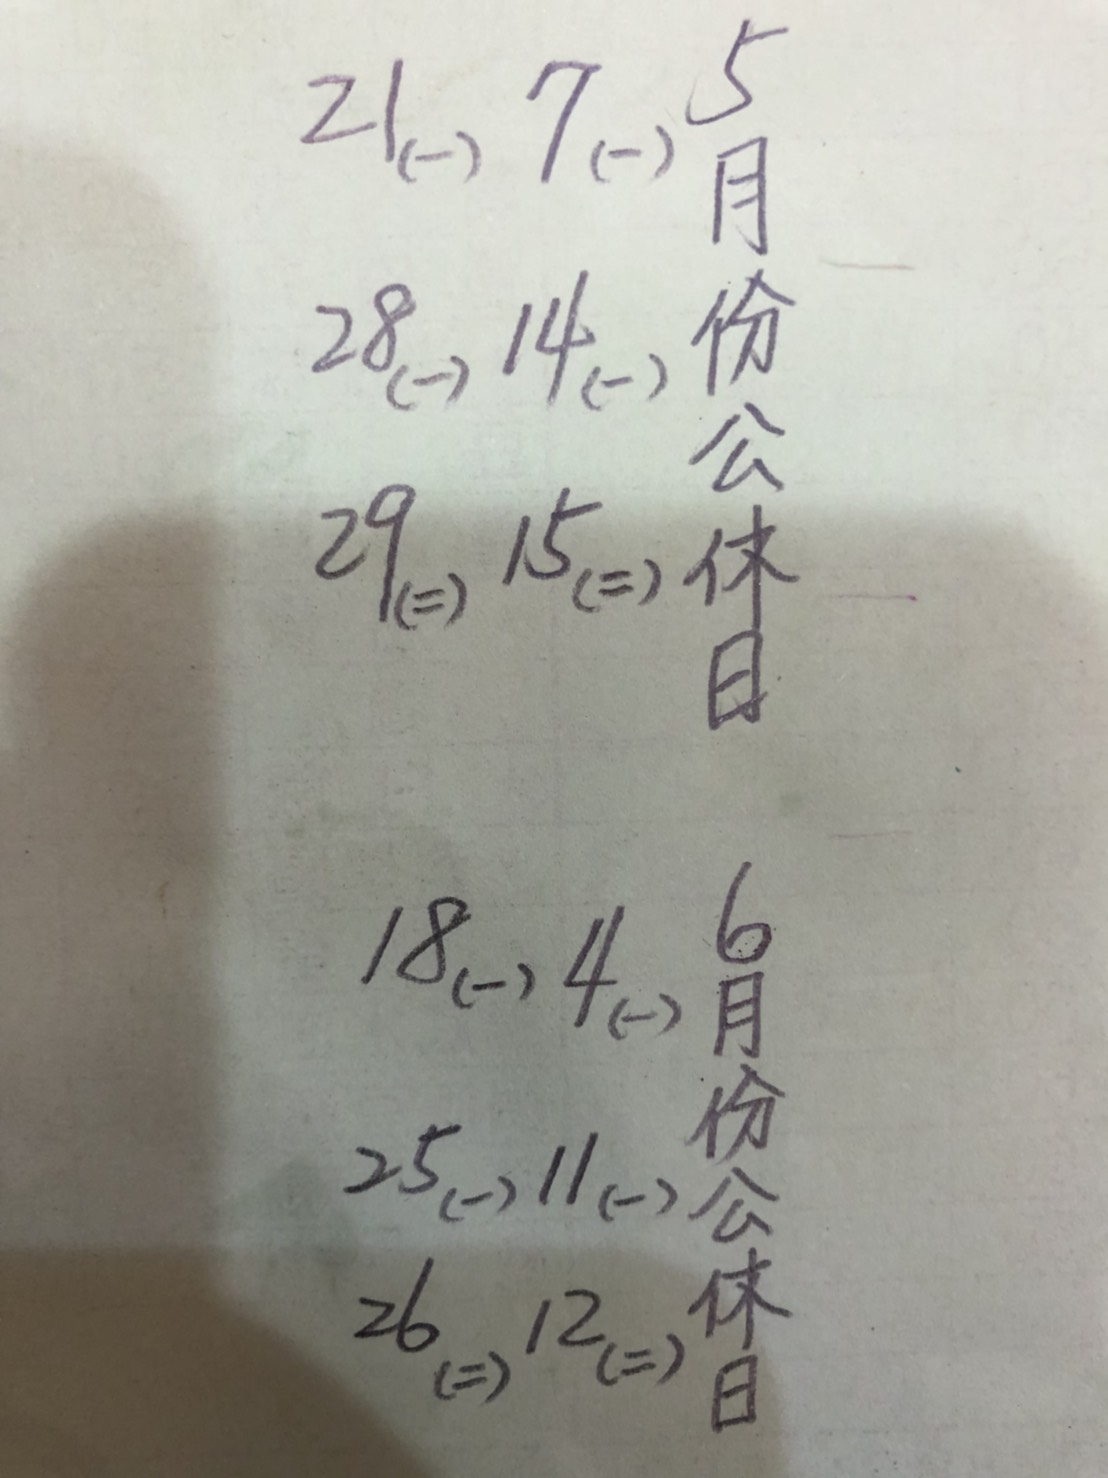 5月份公休日
7(一) 14(一) 15(二)
21(一) 28(一) 29(二)
6月份公休日
4(一) 11(一) 12(二)
18(一) 25(一) 26(二)